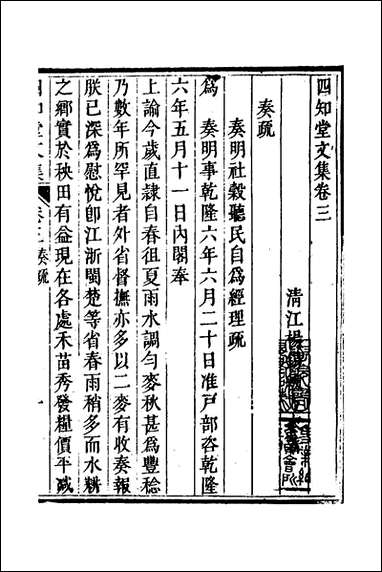 四知堂文集卷三
清江楊
奏疏
奏明社穀聽民自爲經理疏
爲 奏明事乾隆六年六月二十日准戸部咨乾隆
六年五月十一日內閣奉
上諭今歲直隷自春徂夏雨水調勻麥秋甚爲豐稔
乃數年所罕見者外省督撫亦多以二麥有收奏報
朕已深爲慰悅卽江浙閩楚等省春雨稍多而水耕
之鄉實於秧田有益現在各處禾苗秀發糧價平减
四知堂文集 卷三奏疏 一